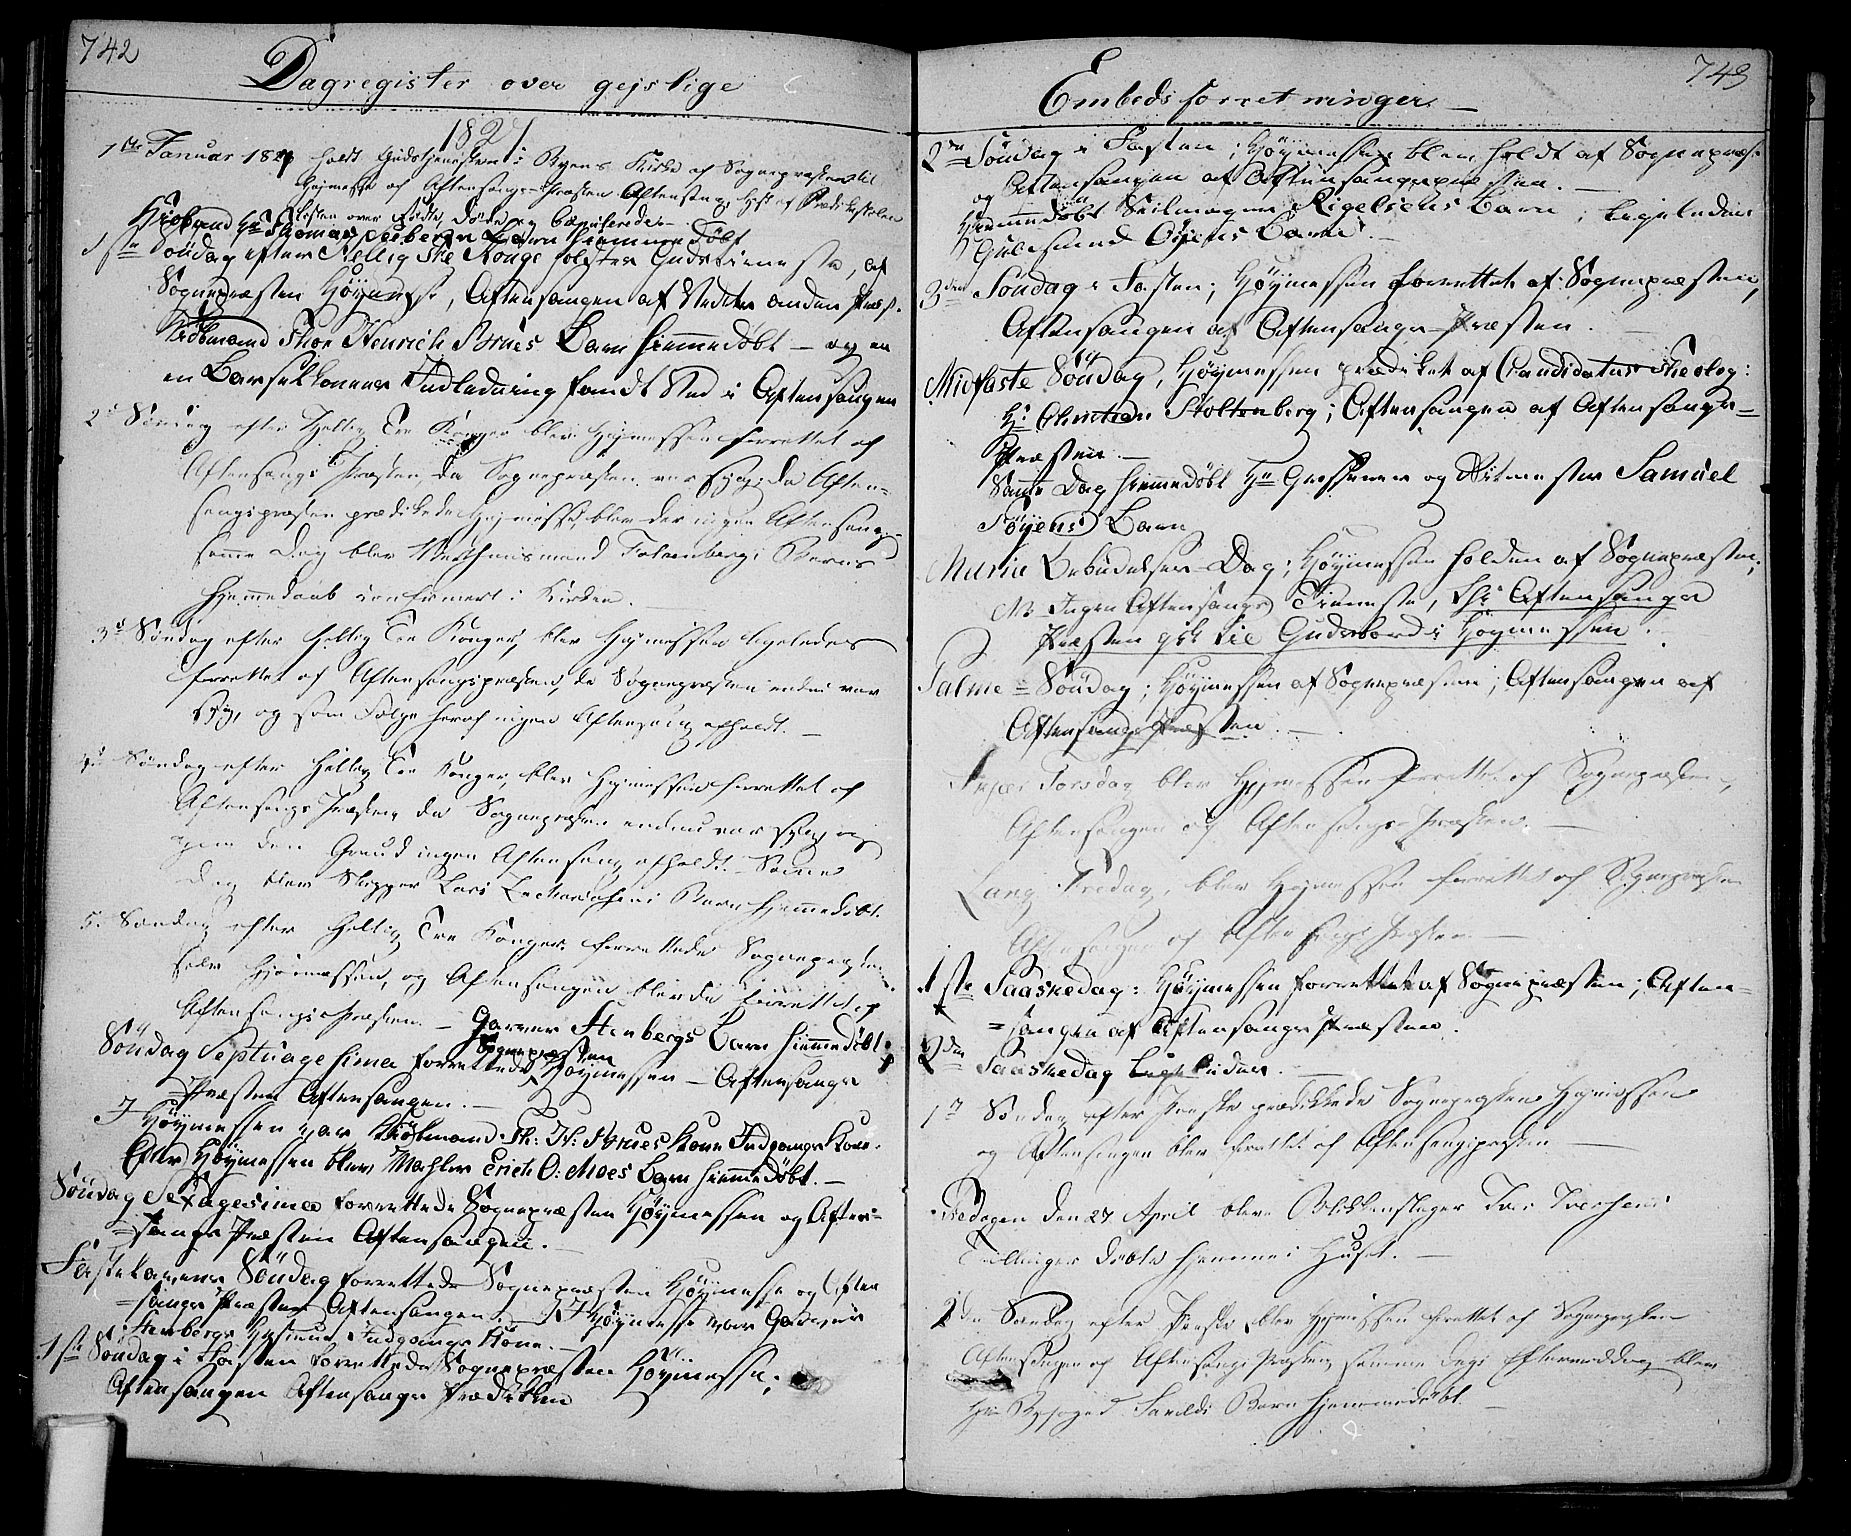 742
Dagregister over gejstlige
1821
1ste Januar 1821 holdt Gudstjenesten i Byens Kirke af Sognepræsten til
Højmesse og Aftensangs-Præsten Aftensang, lyst af Prædikestolen
Listen over fødte, døde og
Kiøbmand Hr Thomas Barn hiemmedøbt
1ste Søndag efter Hellig Tre Konge holdtes Gudstieneste, af
Sognepræsten Høymesse, Aftensangen af Stedets anden Præst.
Kiøbmand Thor Henrich Barn hiemmedøbt – og en
en Barselkones Indledning fandt Sted i Aftensangen
2d Søndag efter Hellig Tre Konger blev Højmessen forrettet af
Aftensangs Præsten, da Sognepræsten var syg; da Aften-
sangspræsten prædikede Højmesse, blev der ingen Aftensang –
samme Dag blev Barns
Hjemmedaab confirmert i Kirken. –
3d Søndag efter hellig Tre Konger, blev Højmessen ligeledes
forrettet af Aftensangspræsten, da Sognepræsten endnu var
syg, og som Følge heraf ingen Aftensang afholdt. –
4d Søndag efter Hellig Tre Konger, blev Højmessen forrettet af
Aftensangs Præsten, da Sognepræsten endnu var syg, og
af den Grund ingen Aftensang afholdt. – Samme
Dag blev Skipper Lars Barn hjemmedøbt.
5. Søndag efter Hellig Tre Konger forrettede Sognepræsten
selv Højmessen, og Aftensangen blev da forrettet af
Aftensangs-Præsten – Garver Stenbergs Barn hiemmedøbt.
Søndag Septuagesima forrettede Sognepræsten Høymessen – Aftensangs
Præsten Aftensangen. –
I Høymessen var Kiøbmand Th: H: Kone Indgangskone.
Efter Høymessen blev Mahler Erich O: Moes Barn hiemmedøbt. –
Søndag Sexagesima forrettede Sognepræsten Høymessen og Aften-
=sangs Præsten Aftensangen. –
Fastelavens Søndag forrettede Sognepræsten Høymesse og Aften
=sangs Præsten Aftensangen. – I Høymesse var Garver
Stenbergs Hustrue Indgangs Kone. –
1ste Søndag i Fasten forrettede Sognepræsten Høymesse;
Aftensangen Aftensangs Prædiken
743
Embedsforretninger. –
2den Søndag i Fasten; Høymessen blev holdt af Sognepræst
og Aftensangen af Aftensangspræsten. –
Hiemmedøbt Seilmager Rigelsens Barn; ligeledes
Barn. –
3den Søndag i Fasten; Høymessen forrettet af Sognepræsten,
Aftensangen af Aftensangs-Præsten. –
Midfaste Søndag, Høymessen prædiket af Candidatus Theolog:
Hr Christian Stoltenberg; Aftensangen af Aftensangs-
Præsten. –
Samme Dag hiemmedøbt Hr og Ritmester Samuel
Barn
Mariæ Bebudelses-Dag; Høymessen holden af Sognepræsten;
NB Ingen Aftensangs Tieneste, thi Aftensangs
Præsten gik til Gudsbord i Høymessen.
Palme=Søndag; Høymessen af Sognepræsten; Aftensangen af
Aftensangs Præsten. –
Skjær Torsdag blev Højmessen forrettet af Sognepræsten,
Aftensangen af Aftensangs-Præsten. –
Lang Fredag, blev Højmessen forrettet af Sognepræsten
Aftensangen af Aftensangs Præsten –
1ste Paaskedag: Høymessen forrettet af Sognepræsten; Aften-
=sangen af Aftensangs Præsten.
2den Paaskedag Ligeledes. –
1ste Søndag efter Paaske prædikede Sognepræsten Højmessen
og Aftensangen blev forrettet af Aftensangspræsten –
Fredagen den 27 April bleve Blikkenslager Iver Iversens
Tvillinger døbte hjemme i Huset. –
2den Søndag efter Paaske blev Højmessen forrettet af Sognepræsten
Aftensangen af Aftensangs Præsten, samme Dags Eftermiddag blev
Hr Byfoged Barn hjemmedøbt. –